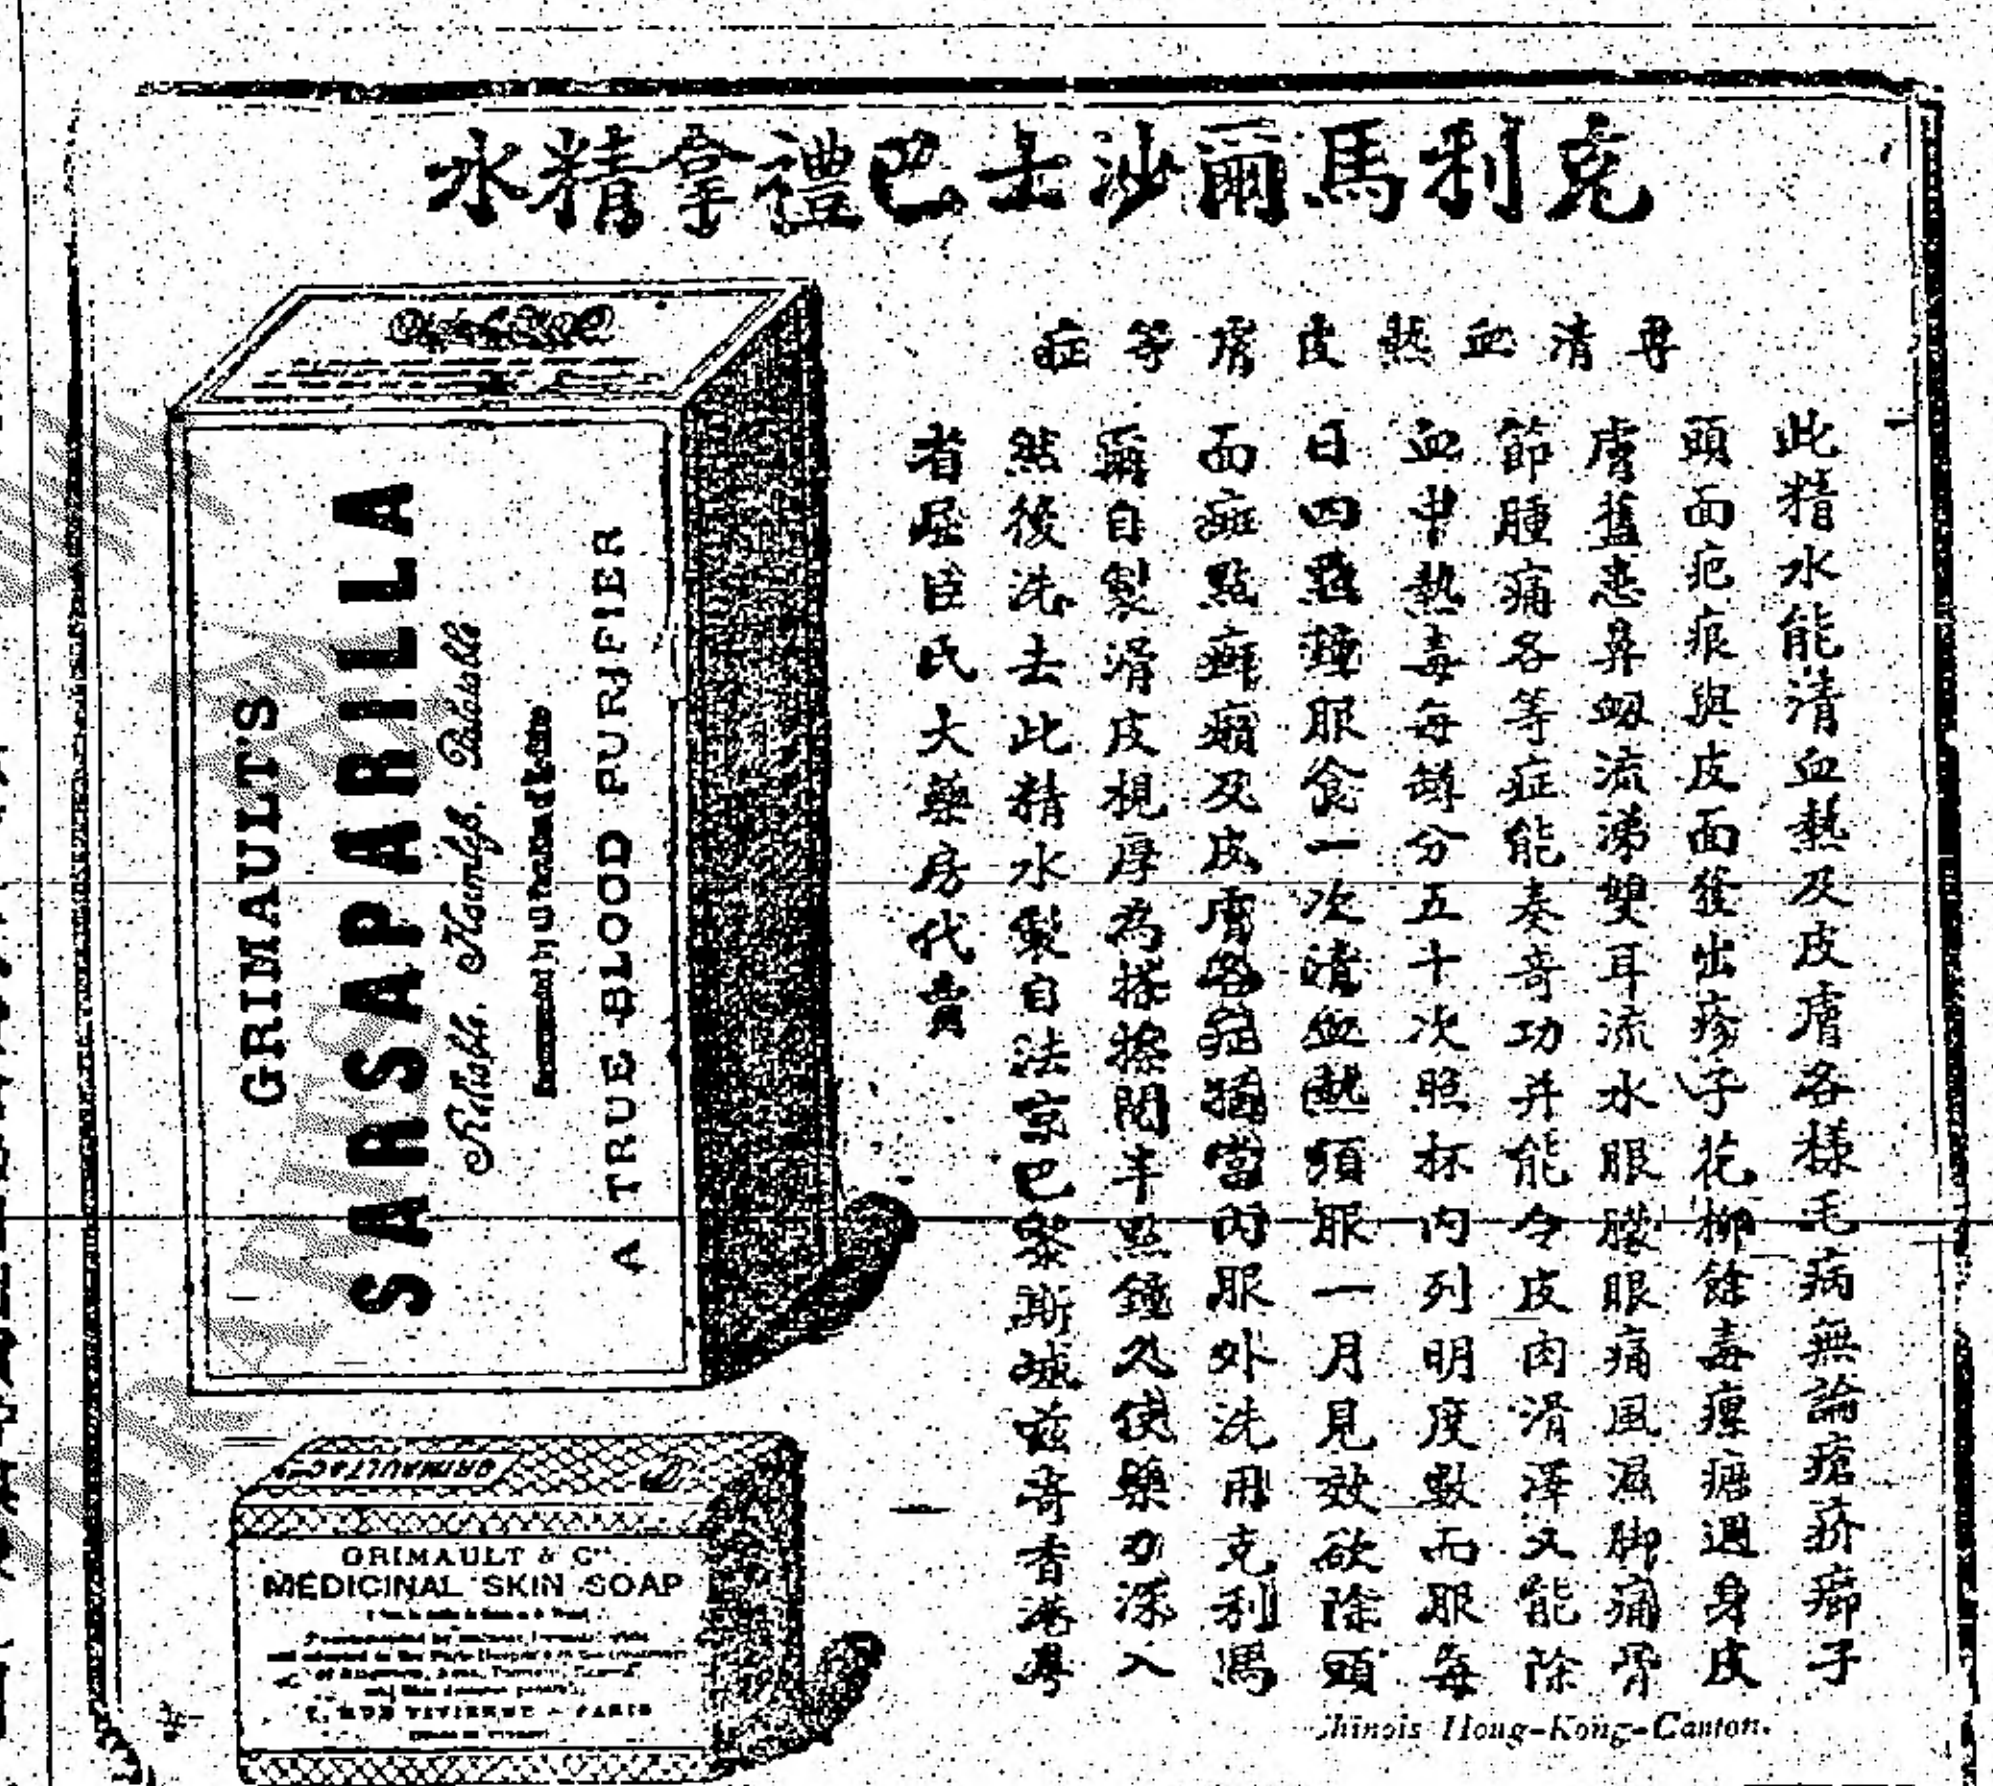 克利馬爾沙士巴禮拿精水
專清血熱皮膚等症
此精水能清血熱及皮膚各樣毛病無論瘡疥癤子
頭面疤痕與皮面發出疹子花柳餘毒瘰癧週身皮
膚藍患鼻衂流涕雙耳流水眼矇眼痛風濕脚痛骨
節腫痛各等症能奏奇功并能令皮肉滑澤又能除
血中熱毒每罇分五十次照杯内列明度數而服每
日四點鐘服食一次清血熱須服一月見效欲除頭
面斑點癬癩及皮膚各症須當内服外洗用克利馬
爾自製滑皮梘厚為搽擦間半點鐘久使藥力深入
然後洗去此精水製自法京巴黎斯城兹寄香港粤
省屈臣氏大藥房代賣
GRIMAULT'S
SARSAPARILLA
Reliable. Harmless. Palatable
A TRUE BLOOD PURIFIER
GRIMAULT & Co
GRIMAULT & Co
MEDICINAL SKIN SOAP
RUE VIVIENNE - PARIS
Hong-Kong-Canton.